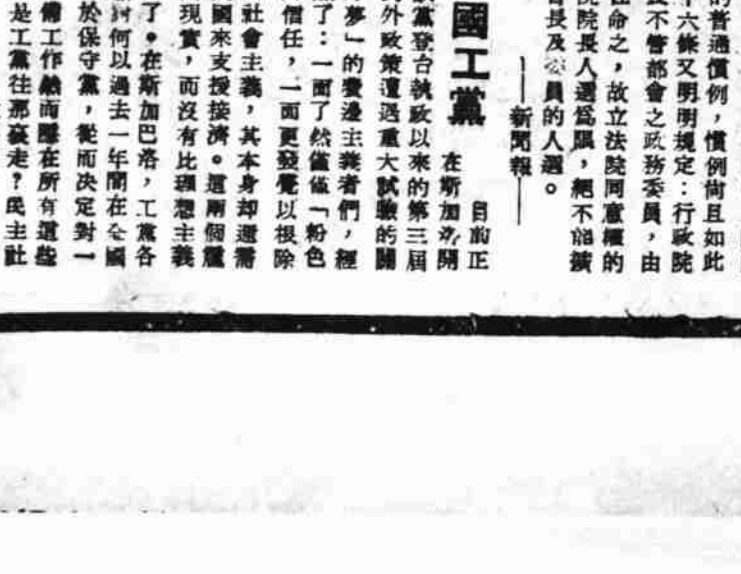 的普通慣例，慣例尚且如此
十六條又明明規定：行政院
長不管部會之政務委員，由
任命之，故立法院同意權的
院長人選爲限，絕不能擴
會長及委員的人選。
——新聞報——
國工黨
目前正
在斯加洛開
黨登台執政以來的第三屆
外政策遭遇重大試驗的關
夢」的費邊主義者們，經
了：一面了然僅僅「粉色
信任，一面更發覺以根除
社會主義，其本身却還需
國來支援接濟。這兩個
現實，而沒有比理想主義
了。在斯加巴洛，工黨各
討何以過去一年間在全國
於保守黨，從而决定對一
備工作然而隱在所有這些
是工黨往那裏走？民主社